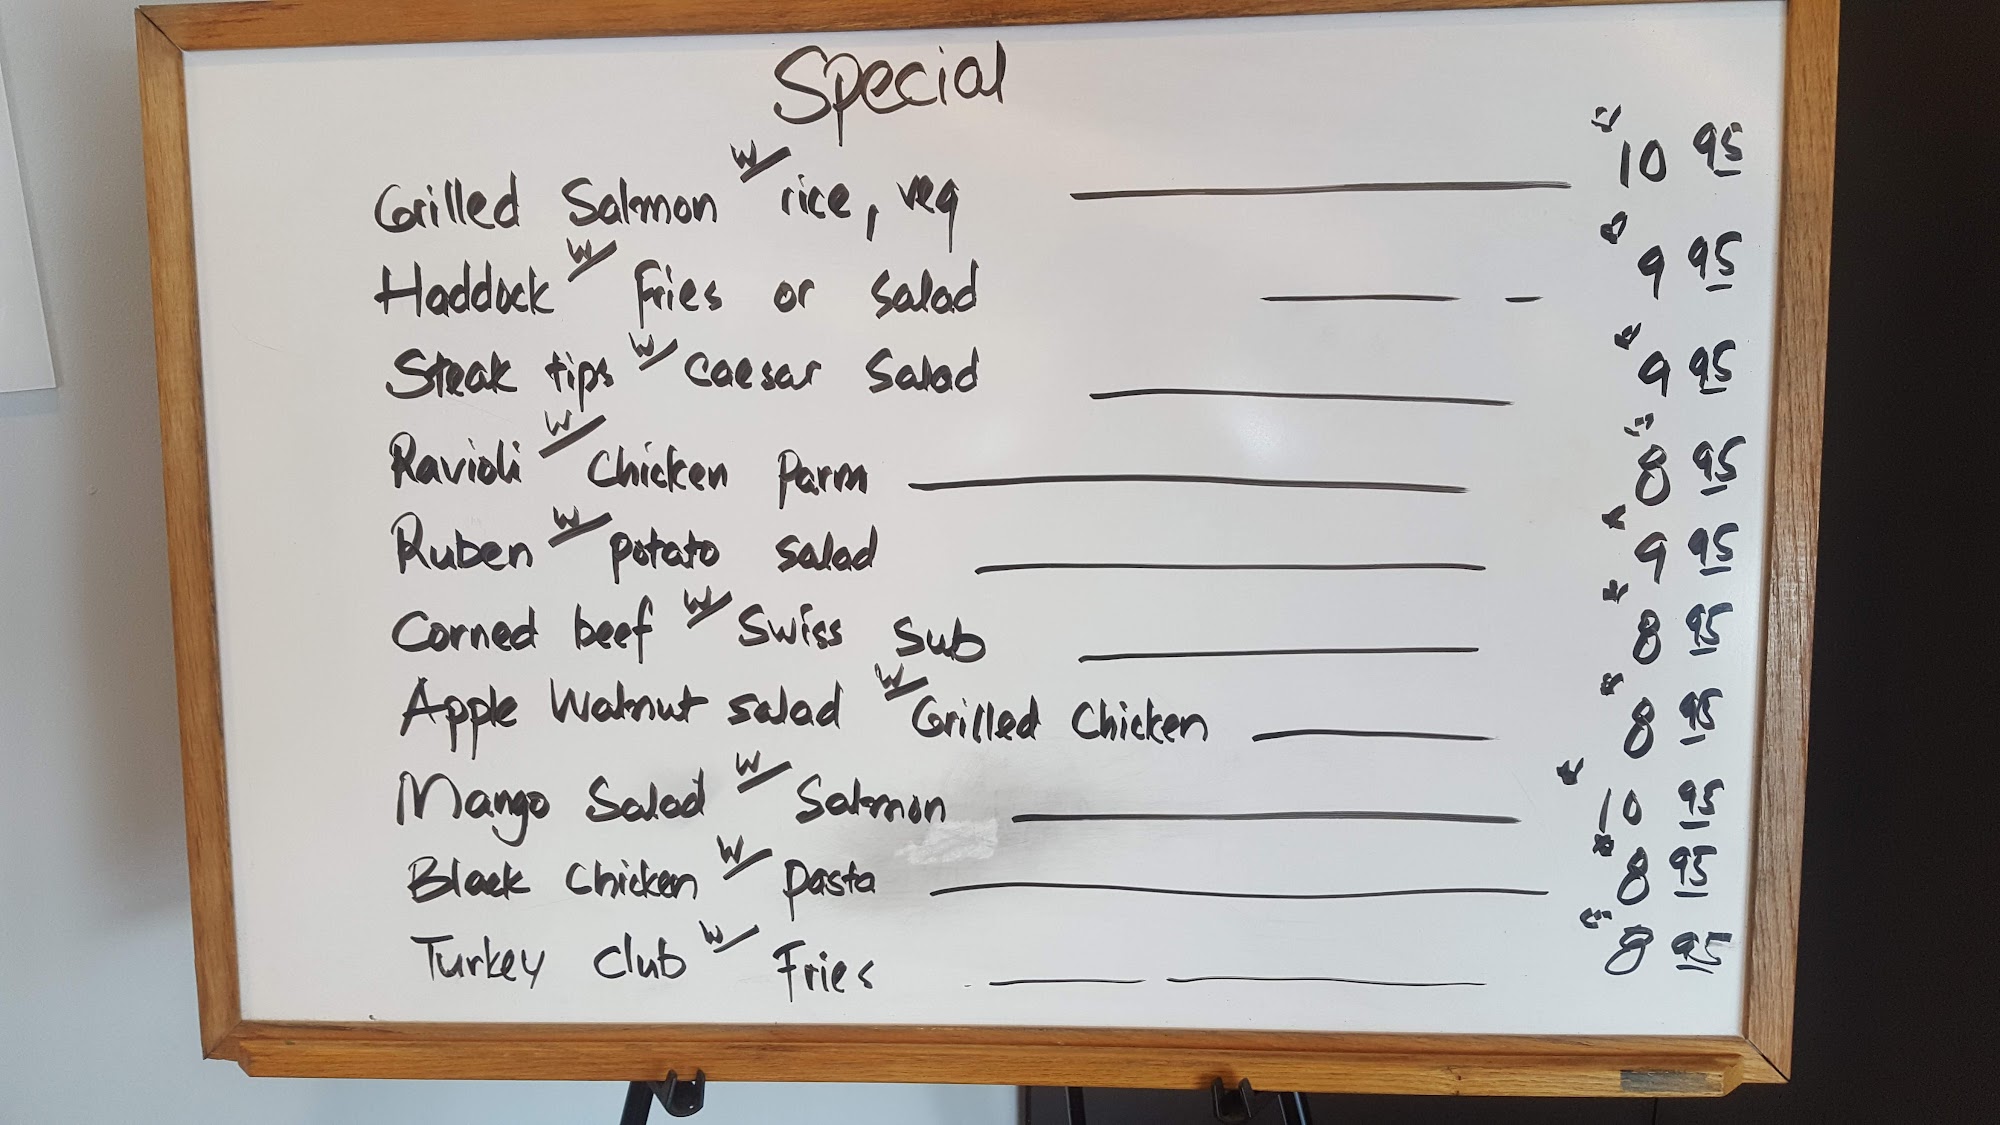 Special
Grilled Salmon w/ rice, veg 10 95
Haddock w/ Fries or salad 9 95
Steak tips w/ caesar salad 9 95
Ravioli w/ Chicken parm 8 95
Ruben w/ potato salad 9 95
Corned beef w/ Swiss Sub 8 95
Apple Walnut salad w/ Grilled Chicken 8 95
Mango Salad w/ Salmon 10 95
Black Chicken w/ pasta 8 95
Turkey Club w/ Fries 8 95